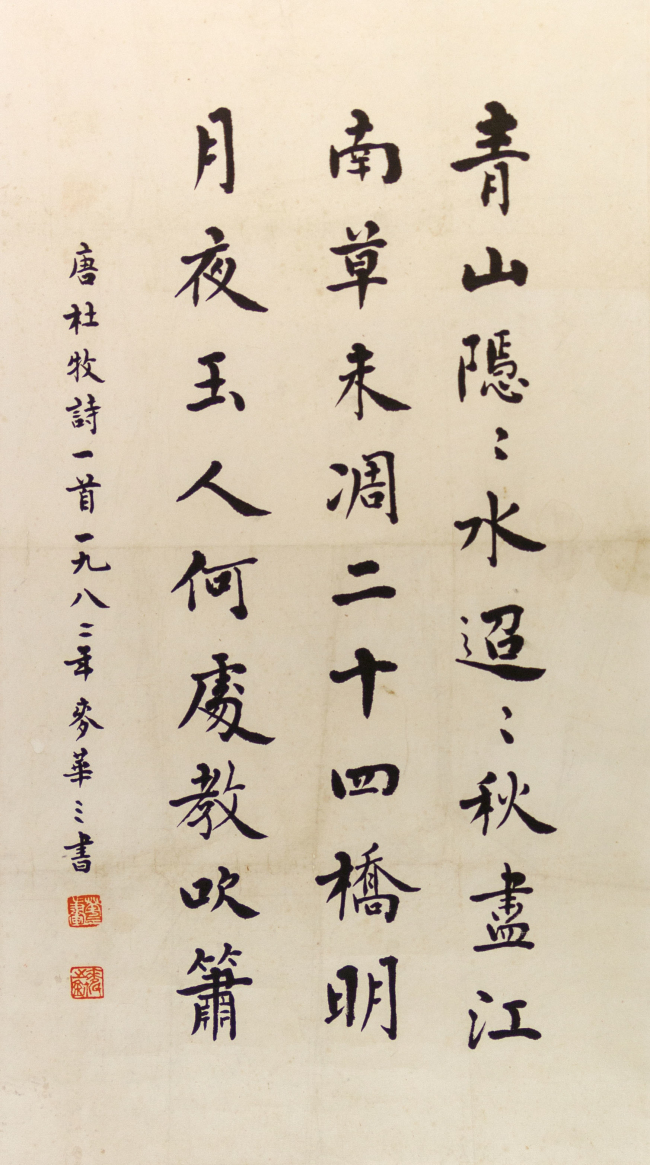 青山隱〻水迢〻秋盡江
南草未凋二十四橋明
月夜玉人何處教吹簫
唐杜牧詩一首一九八二年麥華三書